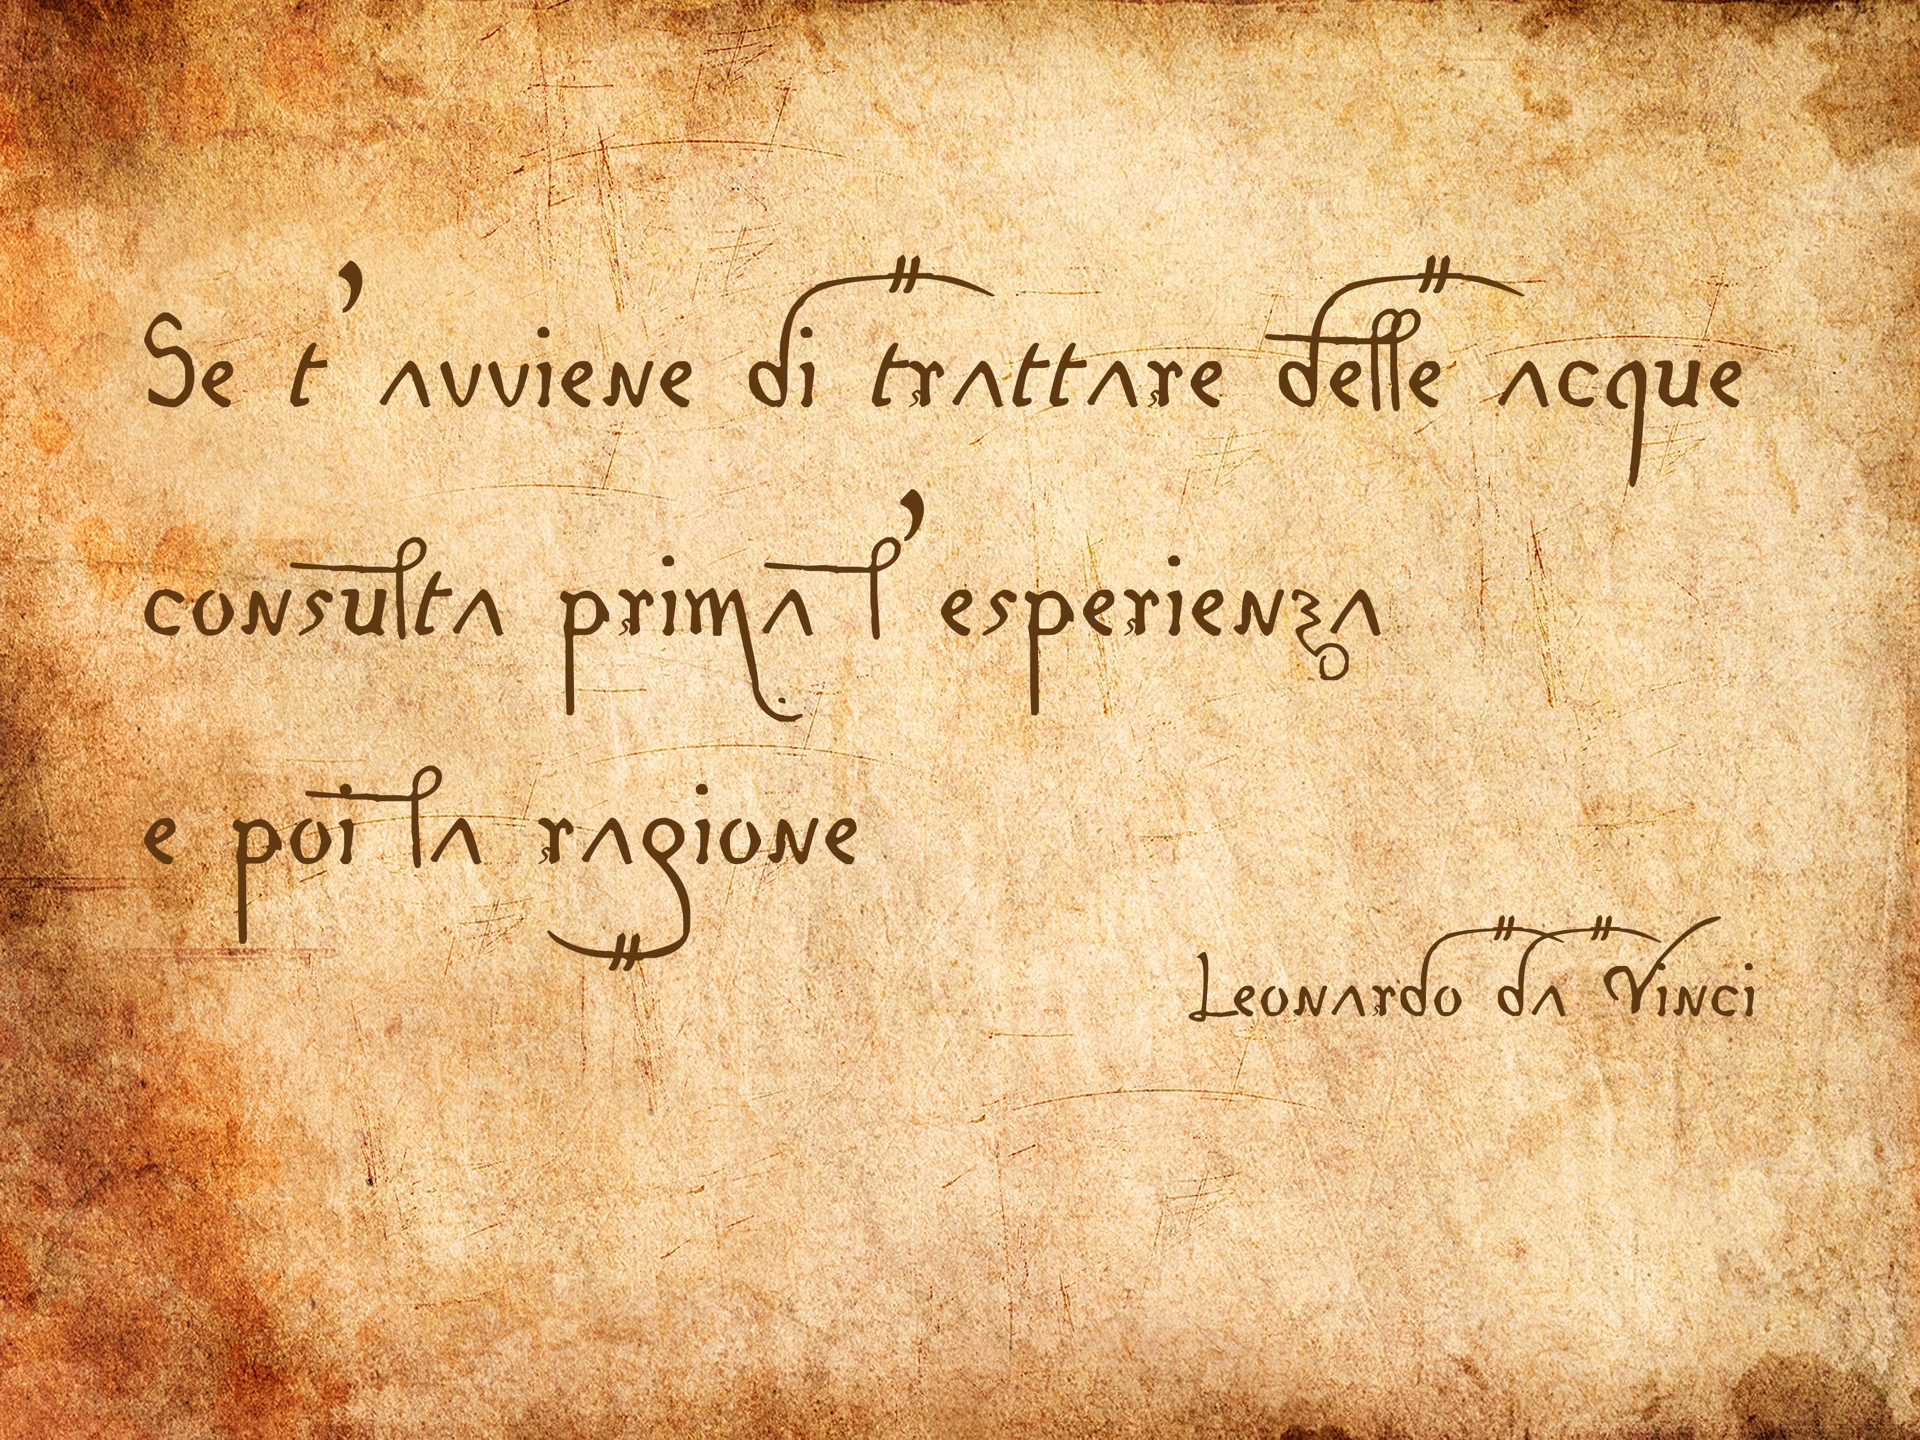 Se t'avviene di trattare delle acque
consulta prima l'esperienza
e poi la ragione
Leonardo da Vinci